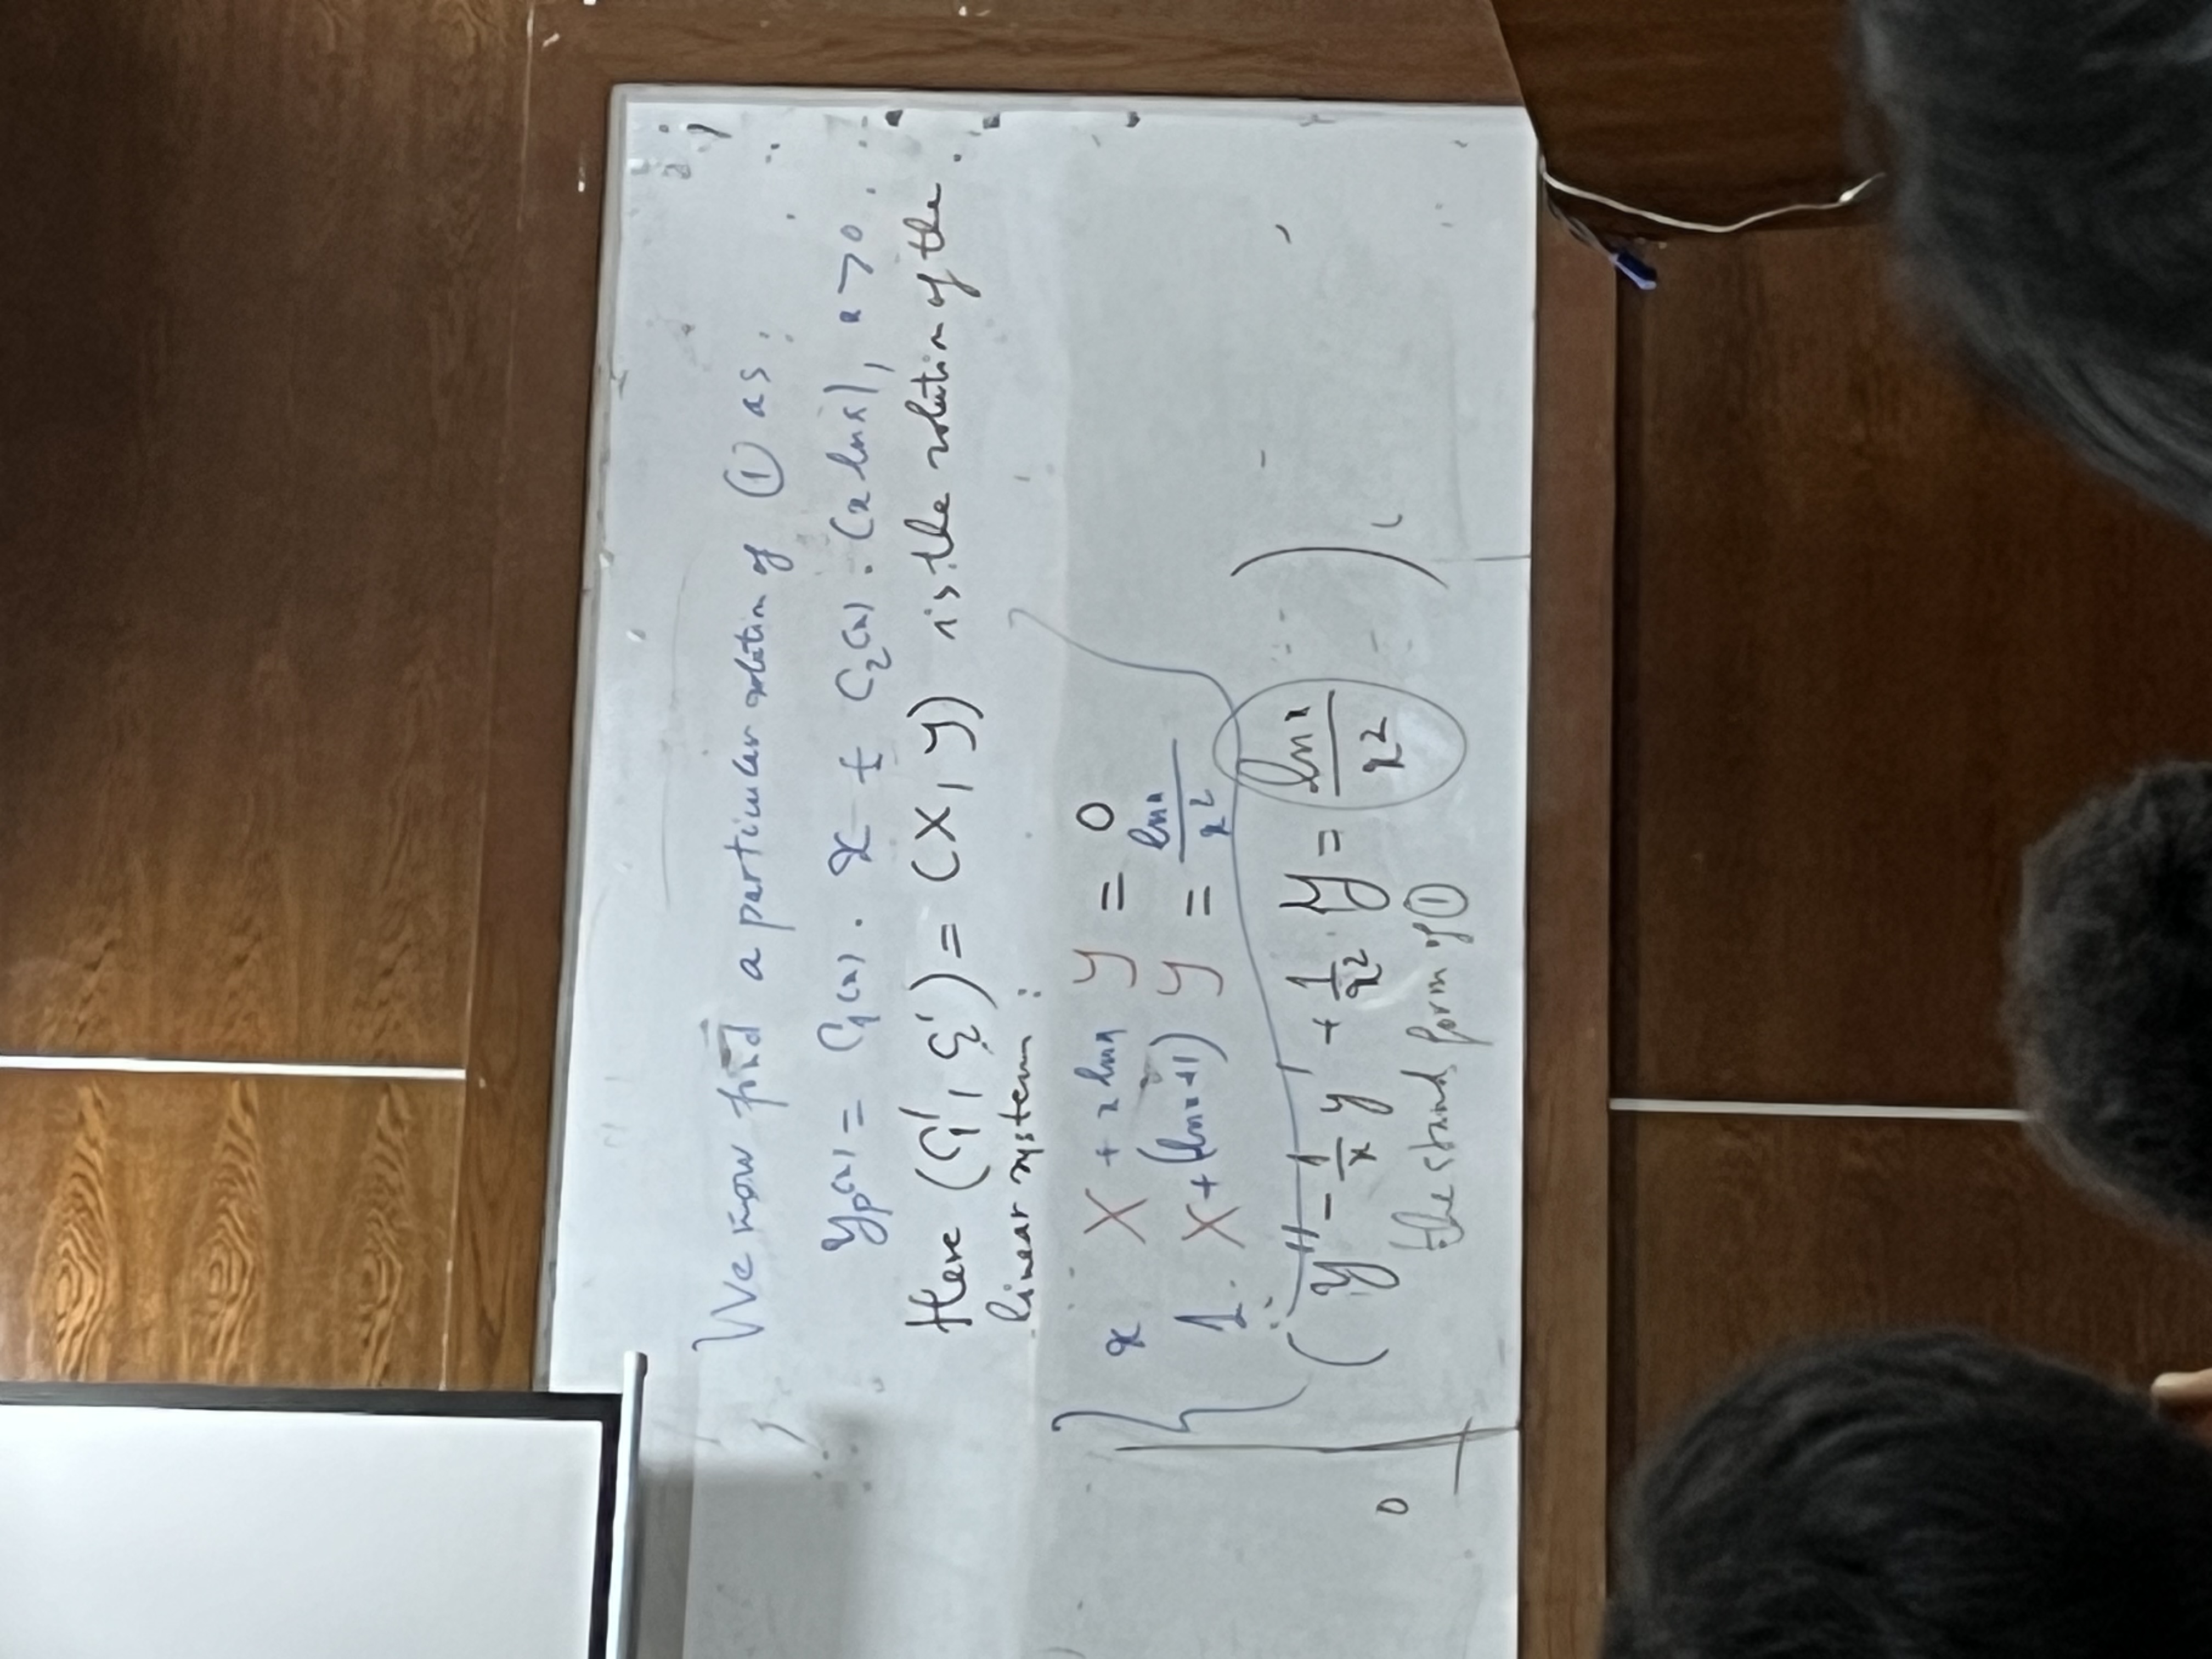 We now find a particular solution of ① as:
yp(x) = C₁(x) . x + C₂(x) . (x ln x), x > 0.
Here (C₁', C₂') = (X, Y) is the solution of the
linear system:
x X + x ln x Y = 0
1. X + (ln x + 1) Y = ln x / x²
( y'' - 1/x y' + 1/x² y = ln x / x² )
the stand form of ①
0